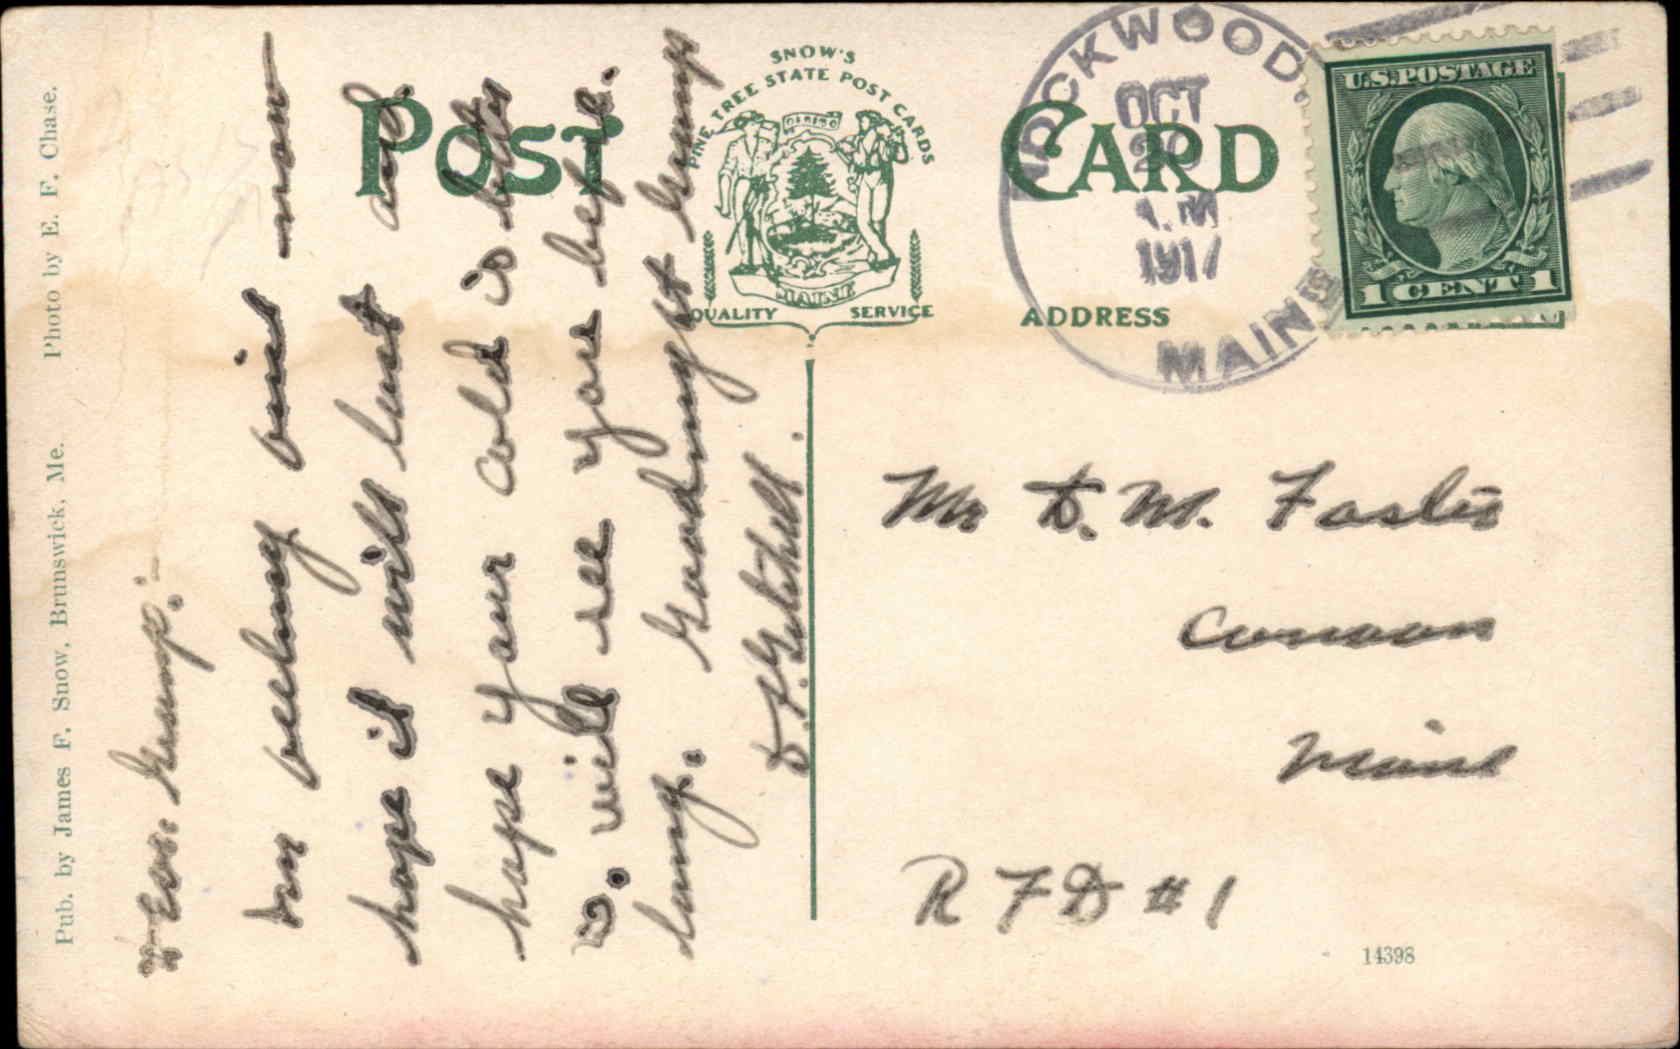 Pub. by James F. Snow, Brunswick, Me. Photo by E. F. Chase.
POST CARD
SNOW'S
PINE TREE STATE POST CARDS
DIRIGO
MAINE
QUALITY SERVICE
ADDRESS
ROCKWOOD.
OCT
A.M
1917
MAINE
U.S. POSTAGE
1 CENT 1
Gump:-
Im feeling fine now
hope it will last and
hope your cold is better
D. will see you before
long. Goodnight Gump
D. F. Getchell.
Mr D. M. Foster
Canaan
Maine
R F D #1
14398